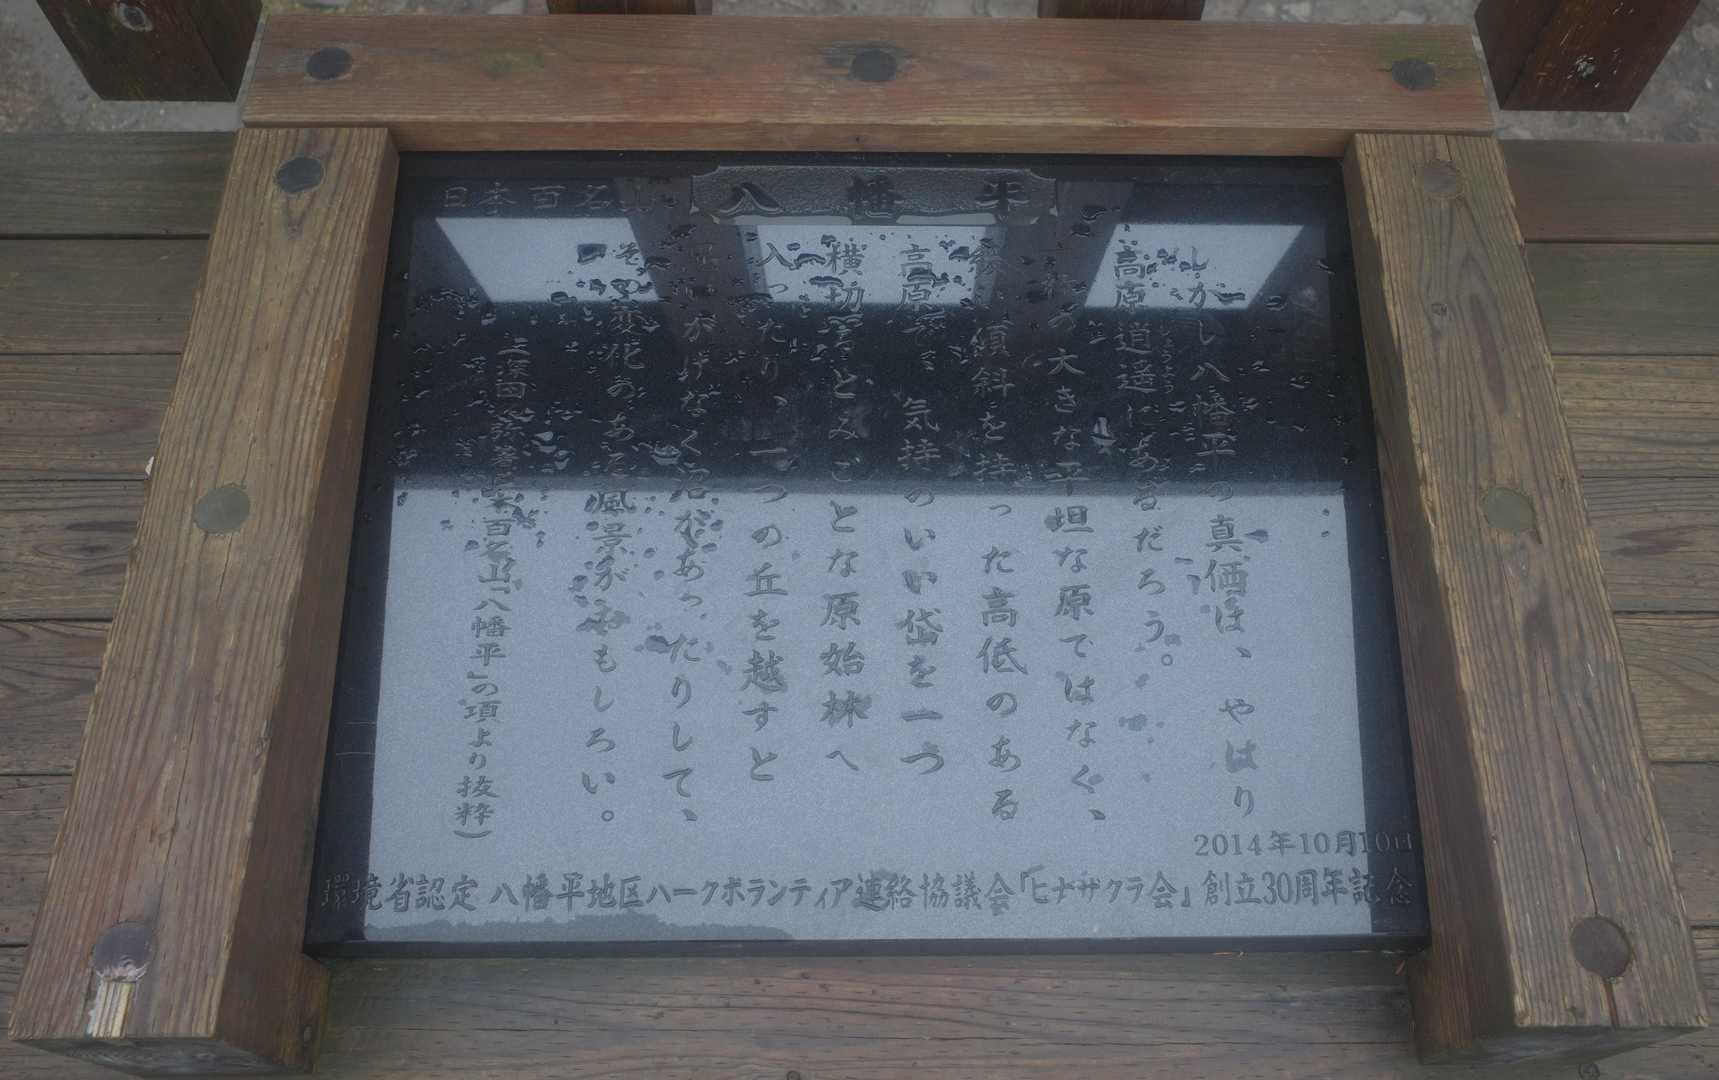 日本百名山 八幡平
しかし八幡平の真価は、やはり
高原逍遥にあるだろう。
しょうよう
の大きな平坦な原ではなく、
傾斜を持った高低のある
高原で、気持のいい岱を一つ
横切るとみごとな原始林へ
入ったり、一つの丘を越すと
がけなく沼があったりして、
その変化のある風景がおもしろい。
深田 百名山「八幡平」の項より抜粋)
2014年10月10日
環境省認定 八幡平地区パークボランティア連絡協議会「ヒナザクラ会」創立30周年記念